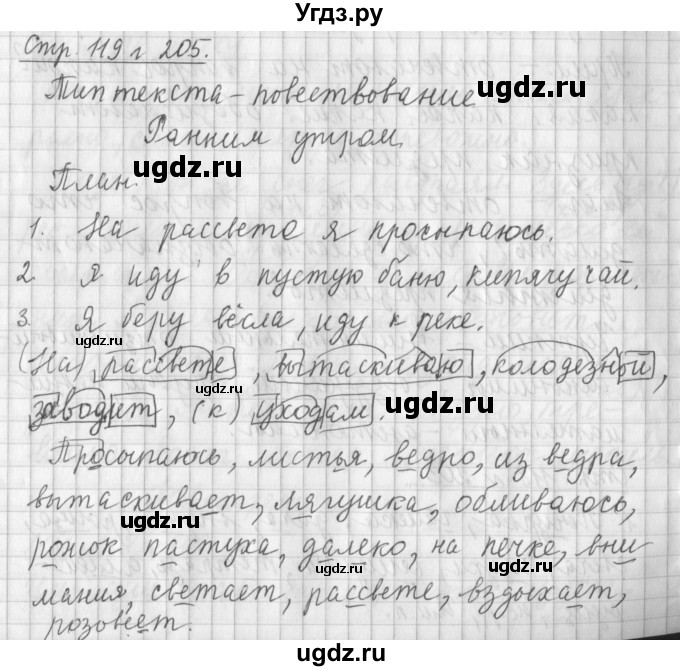 Угдз.ру
Стр. 119 г 205.
ugdz.ru
Тип текста – повествование
ugdz.ru
Ранним утром.
ugdz.ru
План.
1. На рассвете я просыпаюсь.
2. Я иду в пустую баню, кипячу чай.
3. Я беру вёсла, иду к реке.
(На) рассвете, вытаскиваю, колодезный,
ugdz.ru
заводит, (к) уходам.
ugdz.ru
Просыпаюсь, листья, ведро, из ведра,
ugdz.ru
вытаскивает, лягушка, обливаюсь,
ugdz.ru
рожок пастуха, далеко, на печке, вни
ugdz.ru
мания, светает, рассвете, вздыхает,
розовеет.
ugdz.ru
ugdz.ru